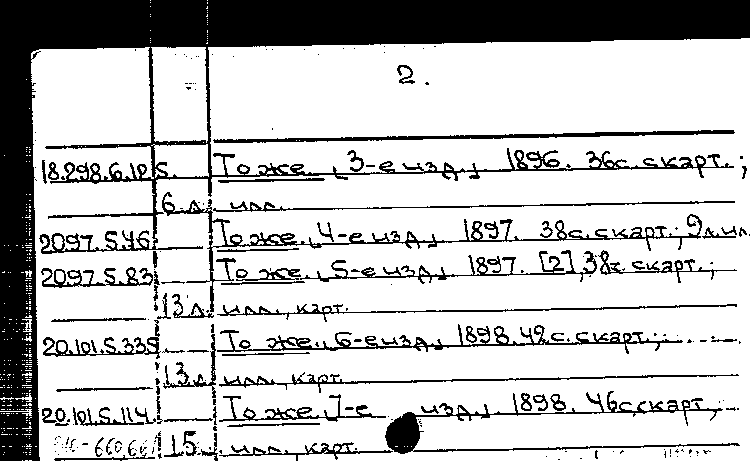 2.
18.298.6.12 S. То же. [3-е изд.] 1896. 36 с. с карт.;
6 л. илл.
20.97.5.46 То же. [4-е изд.] 1897. 38 с. с карт.; 9 л. ил.
20.97.5.83 То же. [5-е изд.] 1897. [2], 38 с. с карт.;
13 л. илл., карт.
20.101.5.335 То же. [6-е изд.] 1898. 42 с. с карт.;
13 л. илл., карт.
20.101.5.114 То же. [7-е изд.] 1898. 46 с. с карт.,
15 илл., карт.